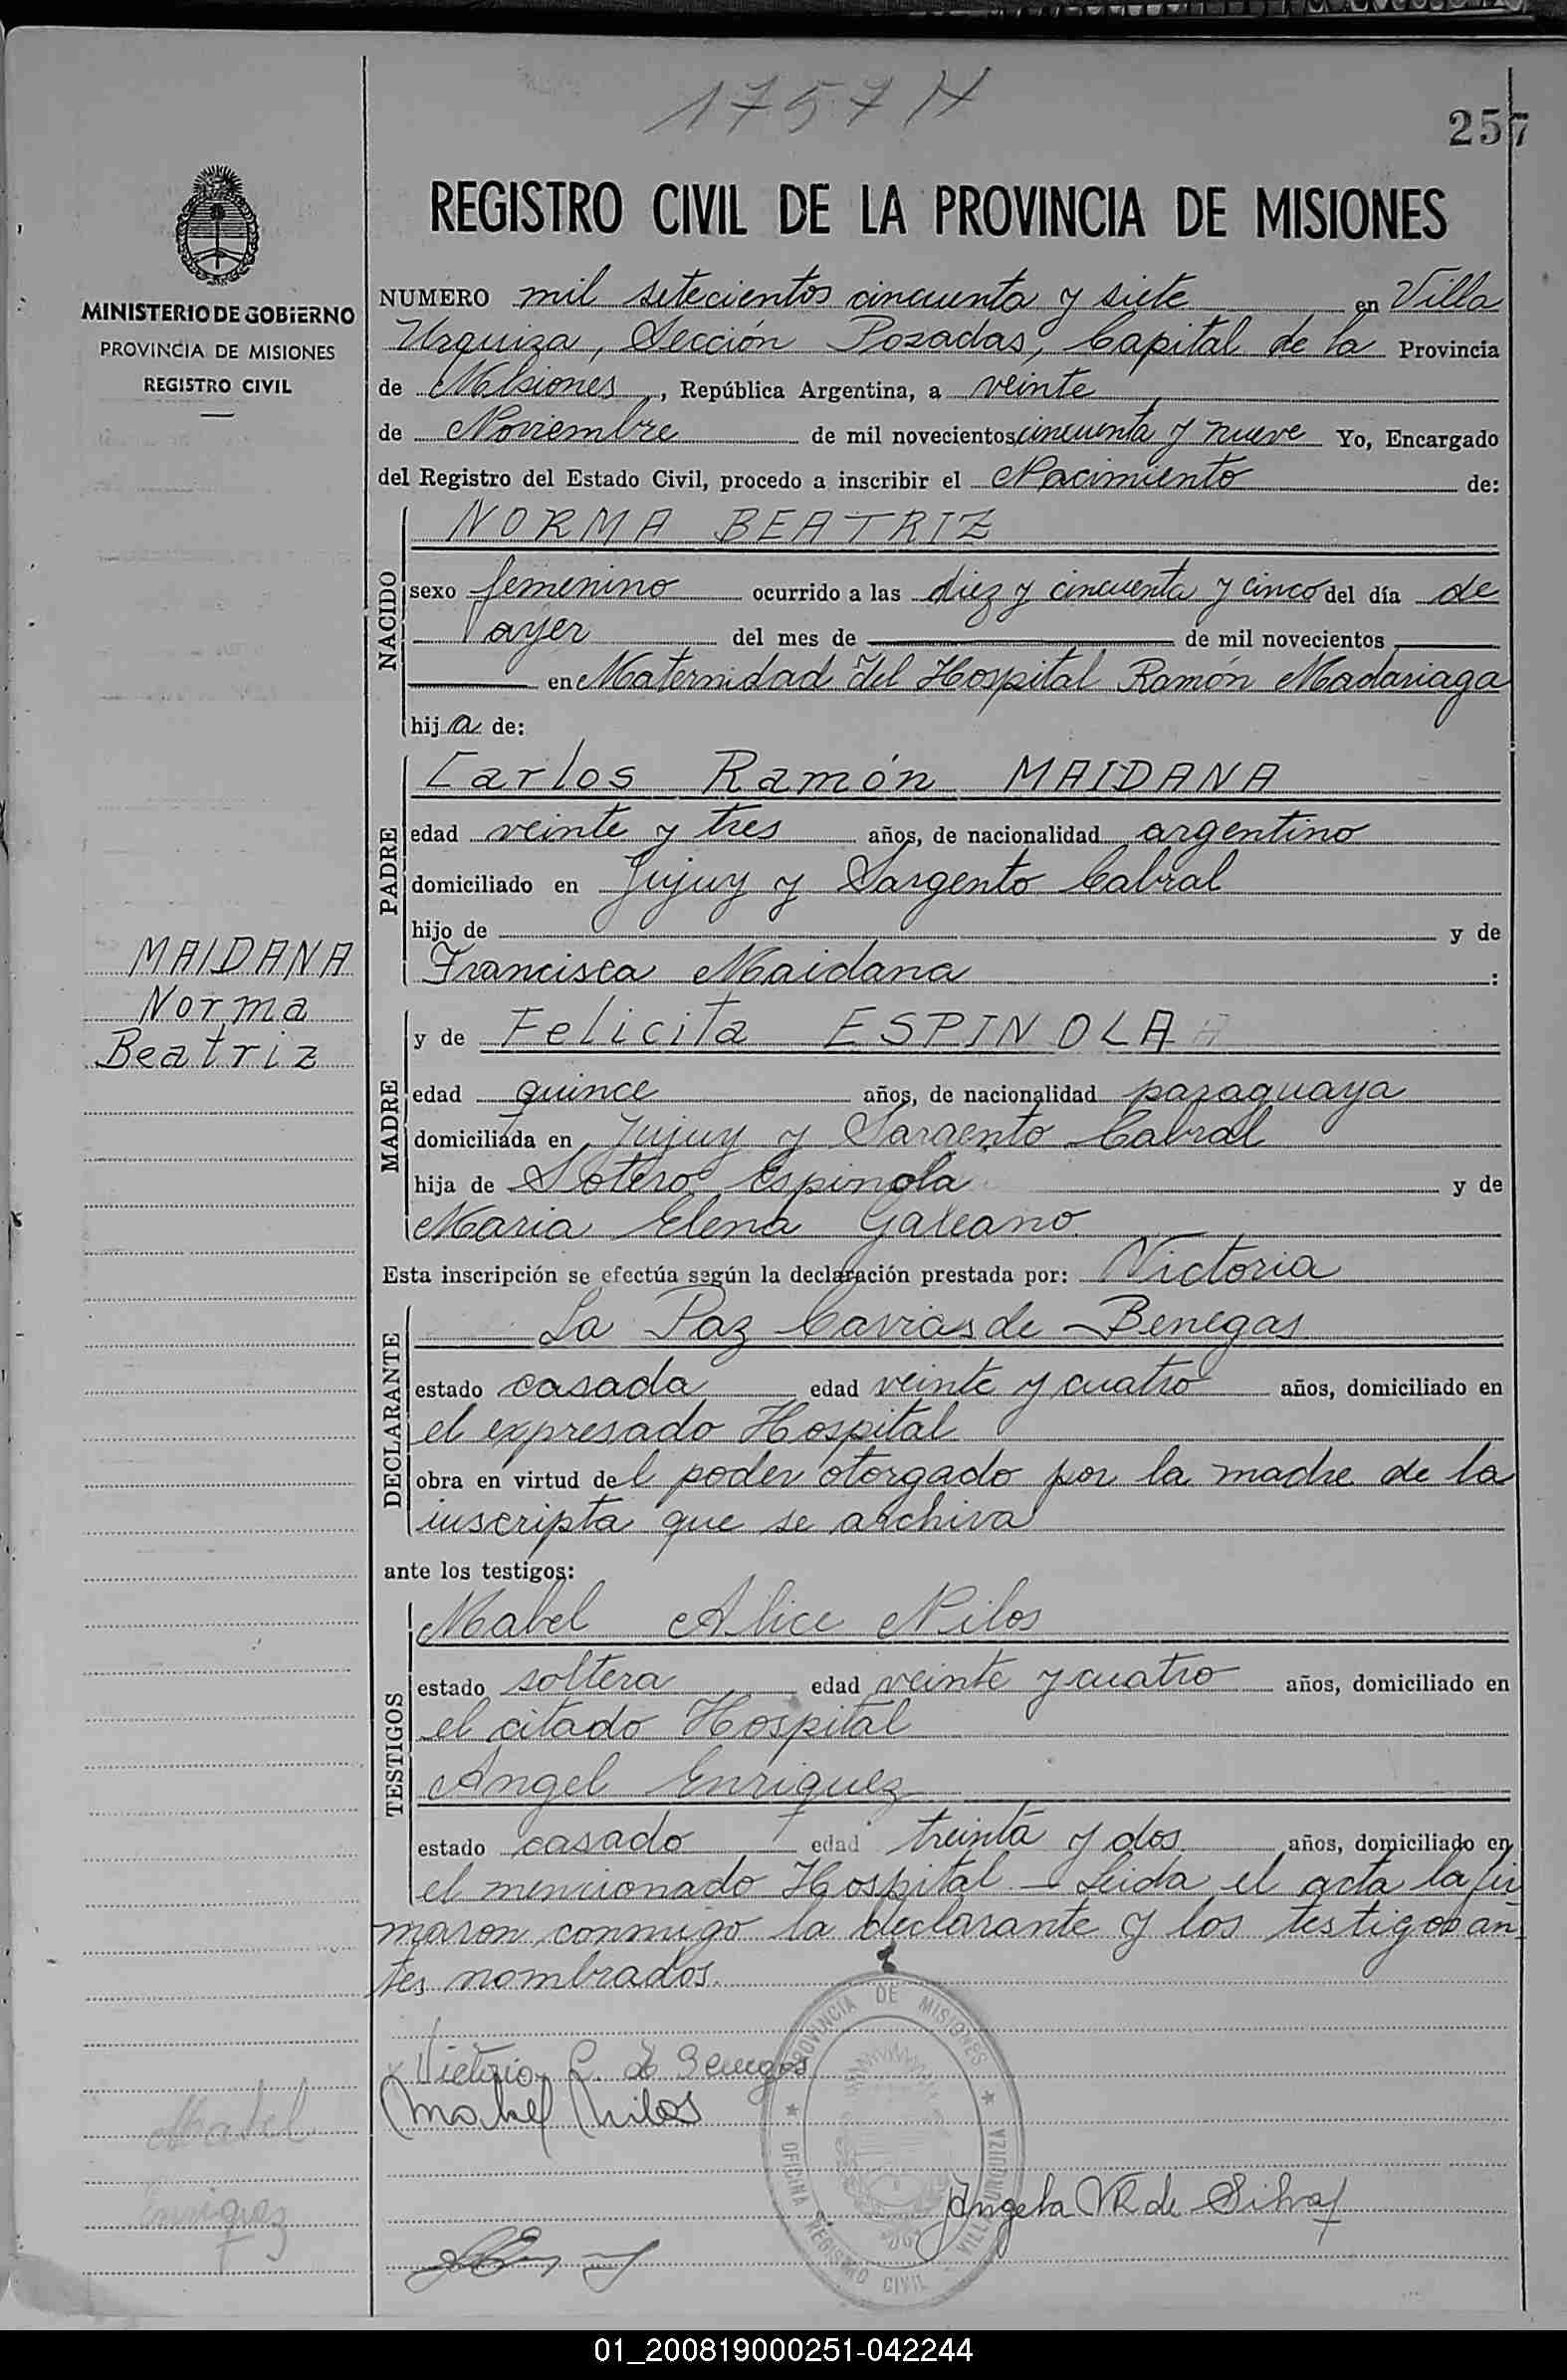 1757 H
257
REGISTRO CIVIL DE LA PROVINCIA DE MISIONES
MINISTERIO DE GOBIERNO
PROVINCIA DE MISIONES
REGISTRO CIVIL
NUMERO mil setecientos cincuenta y siete en Villa
Urquiza, Sección Posadas, Capital de la Provincia
de Misiones, República Argentina, a veinte
de Noviembre de mil novecientos cincuenta y nueve Yo, Encargado
del Registro del Estado Civil, procedo a inscribir el Nacimiento de:
NACIDO
NORMA BEATRIZ
sexo femenino ocurrido a las diez y cincuenta y cinco del día de
ayer del mes de de mil novecientos
en Maternidad del Hospital Ramón Madariaga
hija de:
PADRE
Carlos Ramón MAIDANA
edad veinte y tres años, de nacionalidad argentino
domiciliado en Jujuy y Sargento Cabral
hijo de y de
Francisca Maidana :
MAIDANA
Norma
Beatriz
MADRE
y de Felicita ESPINOLA
edad quince años, de nacionalidad paraguaya
domiciliada en Jujuy y Sargento Cabral
hija de Sotero Espinola y de
Maria Elena Galeano.
Esta inscripción se efectúa según la declaración prestada por: Victoria
DECLARANTE
La Paz Cavias de Benegas
estado casada edad veinte y cuatro años, domiciliado en
el expresado Hospital
obra en virtud del poder otorgado por la madre de la
inscripta que se archiva
ante los testigos:
TESTIGOS
Mabel Alice Nilos
estado soltera edad veinte y cuatro años, domiciliado en
el citado Hospital
Angel Enriquez
estado casado edad treinta y dos años, domiciliado en
el mencionado Hospital. - Leida el acta la fir
maron conmigo la declarante y los testigos an-
tes nombrados.
PROVINCIA DE MISIONES
OFICINA REGISTRO CIVIL VILLA URQUIZA
Victoria C. de Benegas
Mabel Nilos
Mabel
Enriquez
Angela VR de Silva
01_200819000251-042244